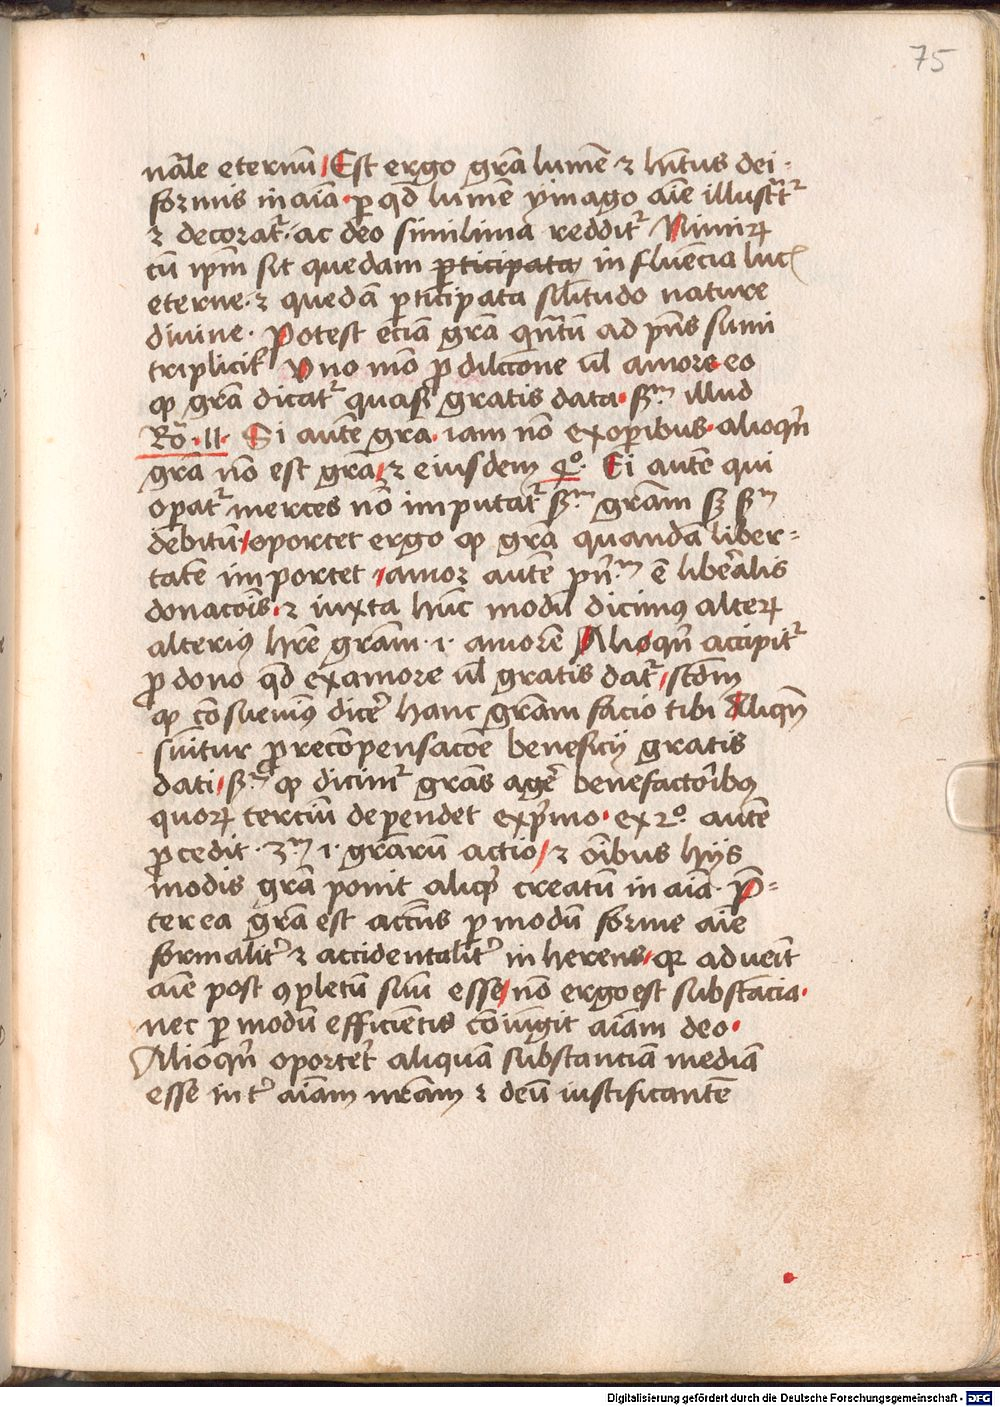 75
nãle eternũ / Est ergo grã lumẽ ⁊ hñtus dei-
formis in aĩa · ꝑ qd lumẽ ymago aĩe illustᷓtᷣ
⁊ decoratᷣ · ac deo similima redditᷣ Nimiꝝ
cũ ipm̃ sit quedam ꝑticipata in fluẽcia luc̃
eterne · ⁊ quedã ꝑticipata sĩlitudo nature
diuine · Potest eciã grã qñtũ ad pñs sumi
tripliciť Uno mõ ꝓ dilc̃cone ul̃ amore eo
ꝙ grã dicatᷣ quasi gratis data · sᷤm illud
Rõ · 11 · Si autẽ grã · iam nõ ex oꝑibus · alioqñ
grã nõ est grã / ⁊ eiusdem 4º · Ei autẽ qui
oꝑatᷣ merces nõ imputatᷣ sᷤm grãm sꝫ sᷤm
debitũ / oportet ergo ꝙ grã quandã liber-
tatẽ importet / amor autẽ pñ.m ẽ liberalis
donacõis · ⁊ iuxta hũc modũ dicimꝰ alteꝝ
alteriꝰ hr̃e grãm · i · amorẽ Alioqñ accipitᷣ
ꝓ dono qd ex amore ul̃ gratis datᷣ / scd̃m
ꝙ cõsueuimꝰ dicẽ hanc grãm facio tibi Aliqñ
sũitur ꝓ recõpensacõe beneficij gratis
dati / sᷤm ꝙ dicimᷣ grãs agẽ benefactoribꝰ
quoꝝ terciũ dependet ex pᷤmo · ex 2º autẽ
ꝓcedit · 3m · i · grãrũ actio / ⁊ oĩbus hijs
modis grã ponit aliqͥd creatũ in aĩa · P̃-
terea grã est accñs ꝑ modũ forme aĩe
formalitᷣ ⁊ accidentalitᷣ in herens · qꝛ adueĩt
aĩe post ꝯpletũ suũ esse / nõ ergo est substãcia ·
nec ꝑ modũ efficiẽtis cõiũgit aĩam deo ·
Alioqñ oporteret aliquã substanciã mediã
esse intᷣ aĩam nr̃am ⁊ deũ iustificantẽ
Digitalisierung gefördert durch die Deutsche Forschungsgemeinschaft - DFG